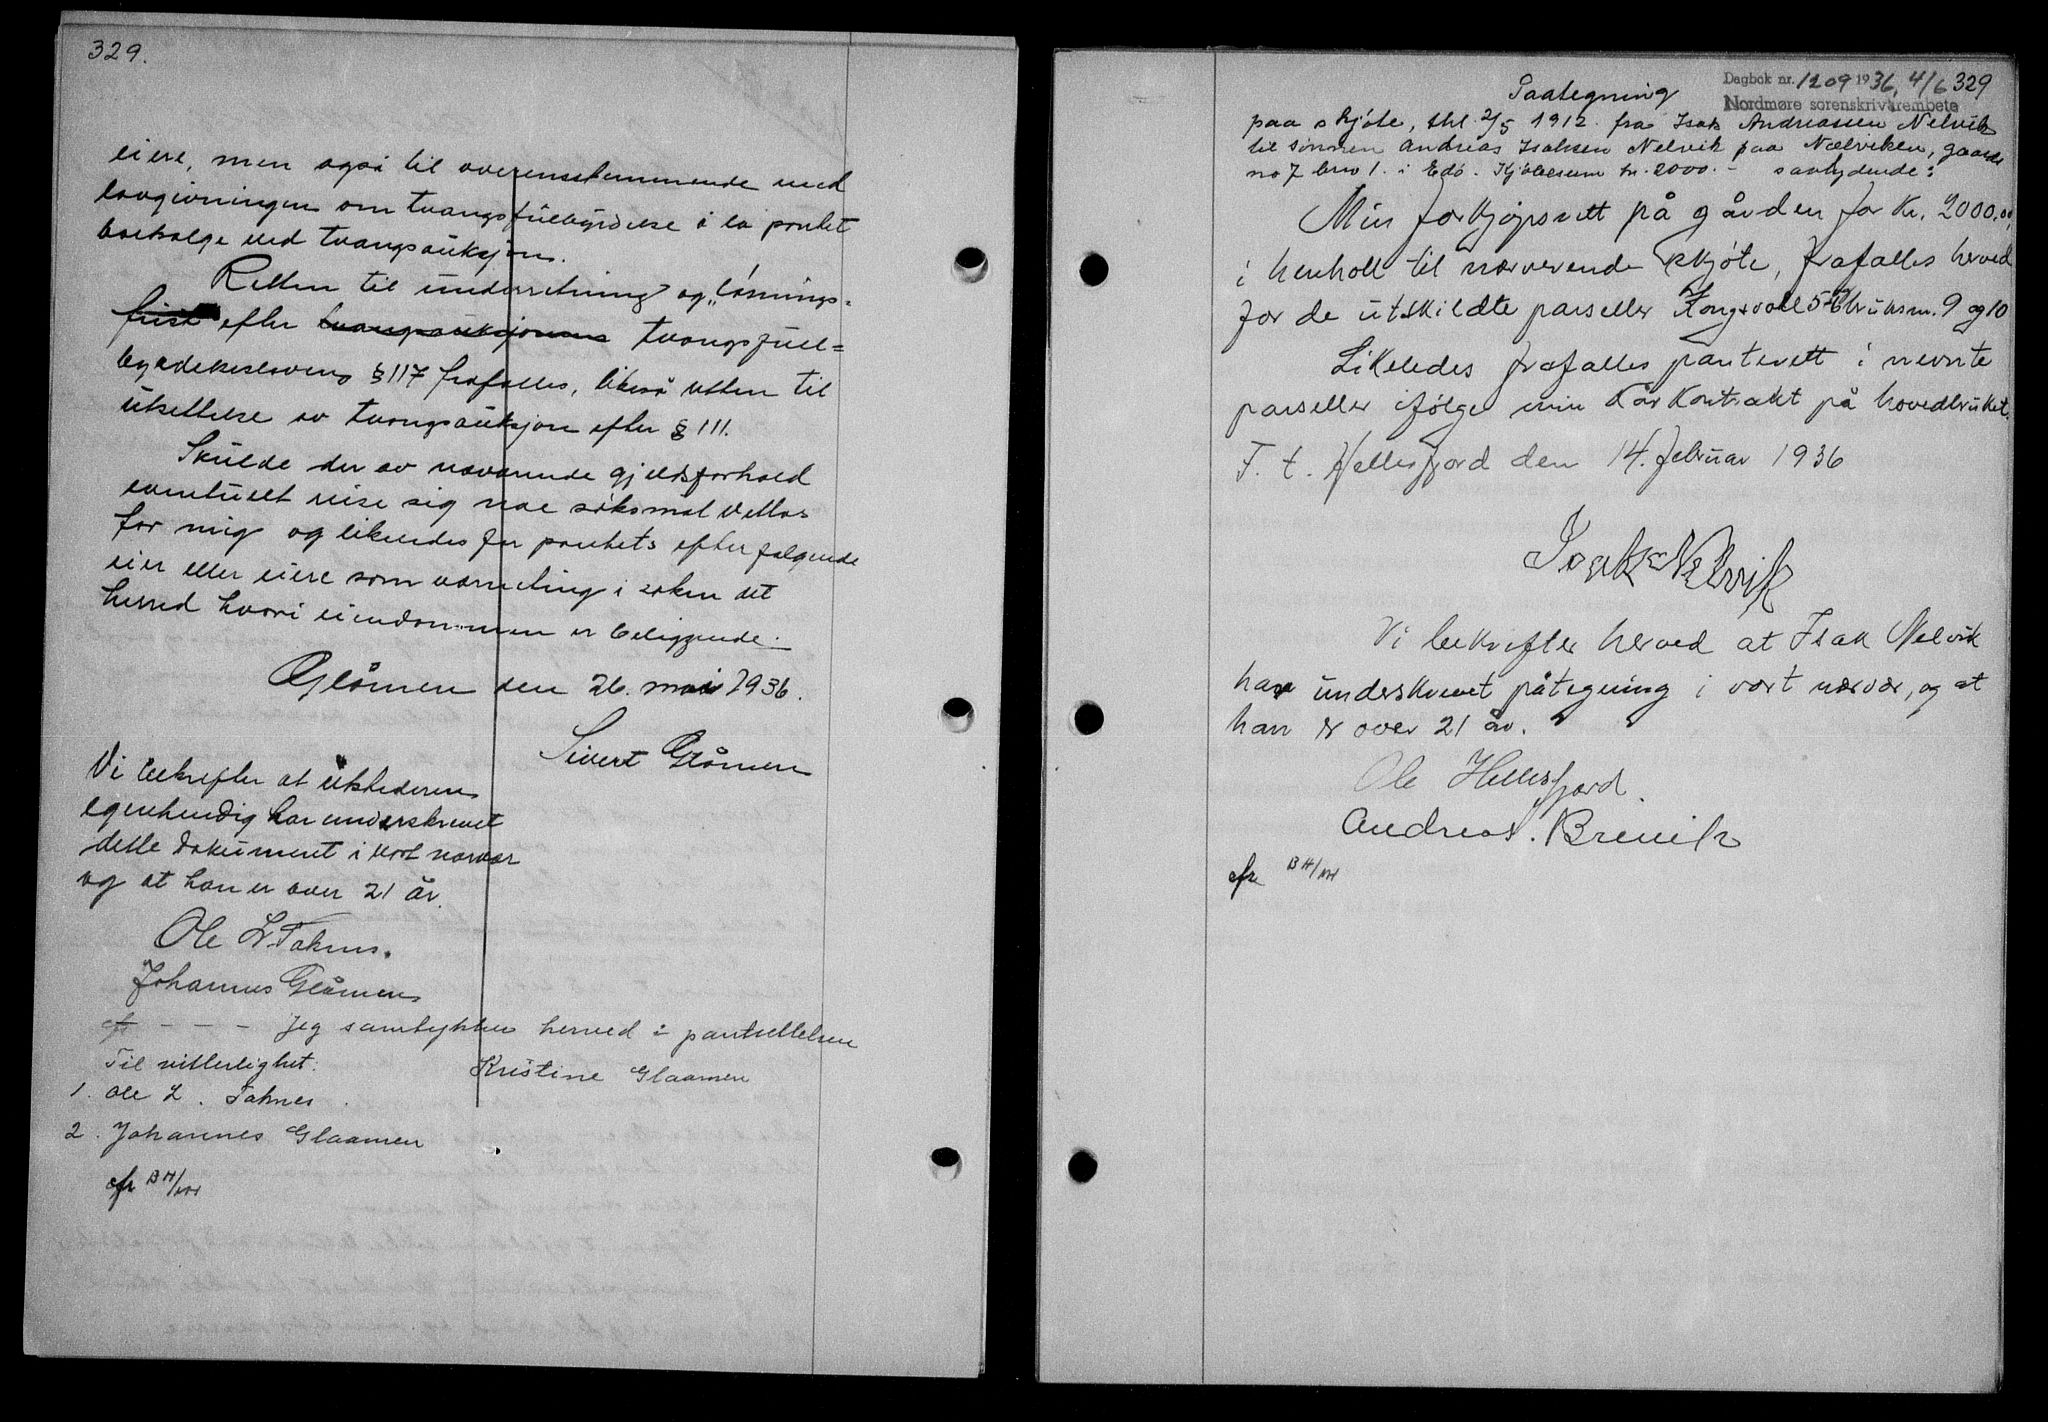 329.
eiere, men også til overensstemmende med
lovgivningen om tvangsfullbyrdelse å la pantet
bortselge ved tvangsauksjon.
Retten til underretning og "løsnings-
frist efter tvangsauksjonens tvangsfull=
byrdelseslovens § 117 frafalles, likeså retten til
utsettelse av tvangsauksjon efter § 111.
Skulde der av nærværende gjeldsforhold
eventuelt reise sig noe søksmål vedtas
for mig og likeledes for pantets efterfølgende
eier eller eiere som verneting i saken det
herred hvori eiendommen er beliggende.
Glåmen den 26. mai 1936.
Sivert Glåmen
Vi bekrefter at utstederen
egenhendig har underskrevet
dette dokument i vort nærvær
og at han er over 21 år.
Ole L. Taknes.
Johannes Glåmen
efr - - - Jeg samtykker herved i pantsettelsen
Til vitterlighet: Kristine Glaamen
1. Ole L. Taknes.
2. Johannes Glaamen
efr BH/
Dagbok nr. 1209 1936, 4/6 329
Nordmøre sorenskriverembete
Paategning
paa skjøte, thl. 2/5 1912 fra Isak Andreassen Nelvik
til sønnen Andreas Isaksen Nelvik paa Nælviken, gaards
no 7 brno 1. i Edø. Kjøbesum kr. 2000.- saalydende:
Min forkjøpsrett på gården for Kr. 2000,00,
i henholt til nærverende skjøte, frafalles herved
for de utskildte parseller Kongsvoll bruksnr. 9 og 10
Likeledes frafalles panterett i nevnte
parseller ifølge min Kårkontrakt på hovedbruket.
F. t. Hellesfjord den 14. februar 1936
Isak Nelvik
Vi bekrefter herved at Isak Nelvik
har underskrevet påtegning i vort nærvær, og at
han er over 21 år.
Ole Hellesfjord.
Andreas. Brevik
efr BH/